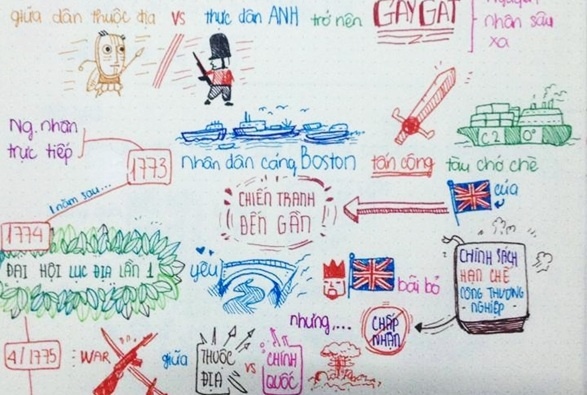 giữa dân thuộc địa vs thực dân ANH trở nên GAY GẮT
nhân sâu
xa
Ng. nhân
trực tiếp
1773
nhân dân cảng Boston tấn công tàu chở chè
1 năm sau...
CHIẾN TRANH
ĐẾN GẦN
của
1774
ĐẠI HỘI LỤC ĐỊA LẦN 1
yêu
cầu
bãi bỏ
CHÍNH SÁCH
HẠN CHẾ
CÔNG THƯƠNG
- NGHIỆP -
nhưng,...
CHẤP
NHẬN
4/1775
: WAR
giữa
THUỘC
ĐỊA
vs
CHÍNH
QUỐC